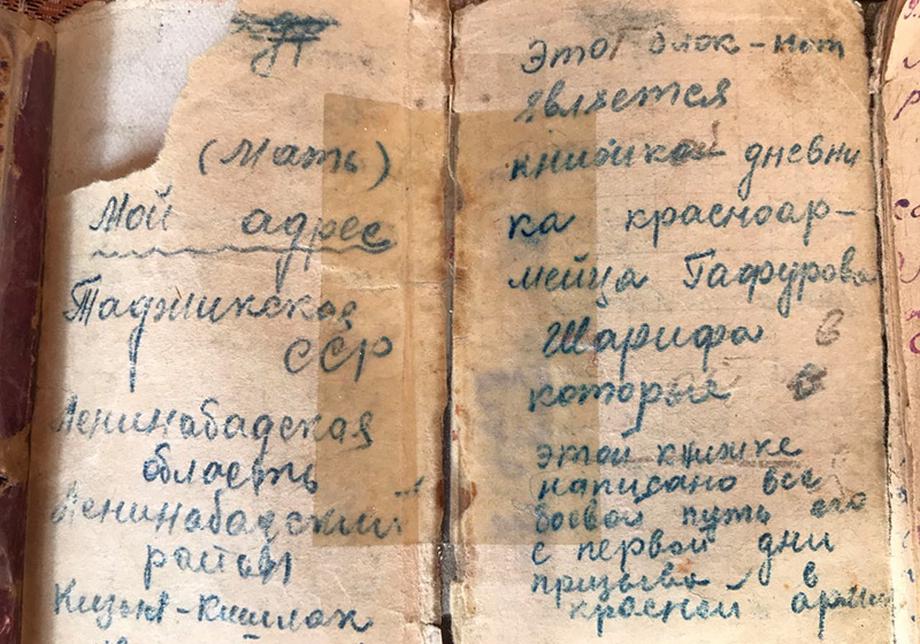 (Мать)
Мой адрес
Таджикская
ССР
Ленинабадская
область
Ленинабадский
Кизыл-Кишлак
Этот блок-нот
является
книжкой дневни
ка красноар-
мейца Гафурова
Шарифа в
которые в
этой книжке
написано все
боевой путь его
с первой дни
призыва в
красной армии